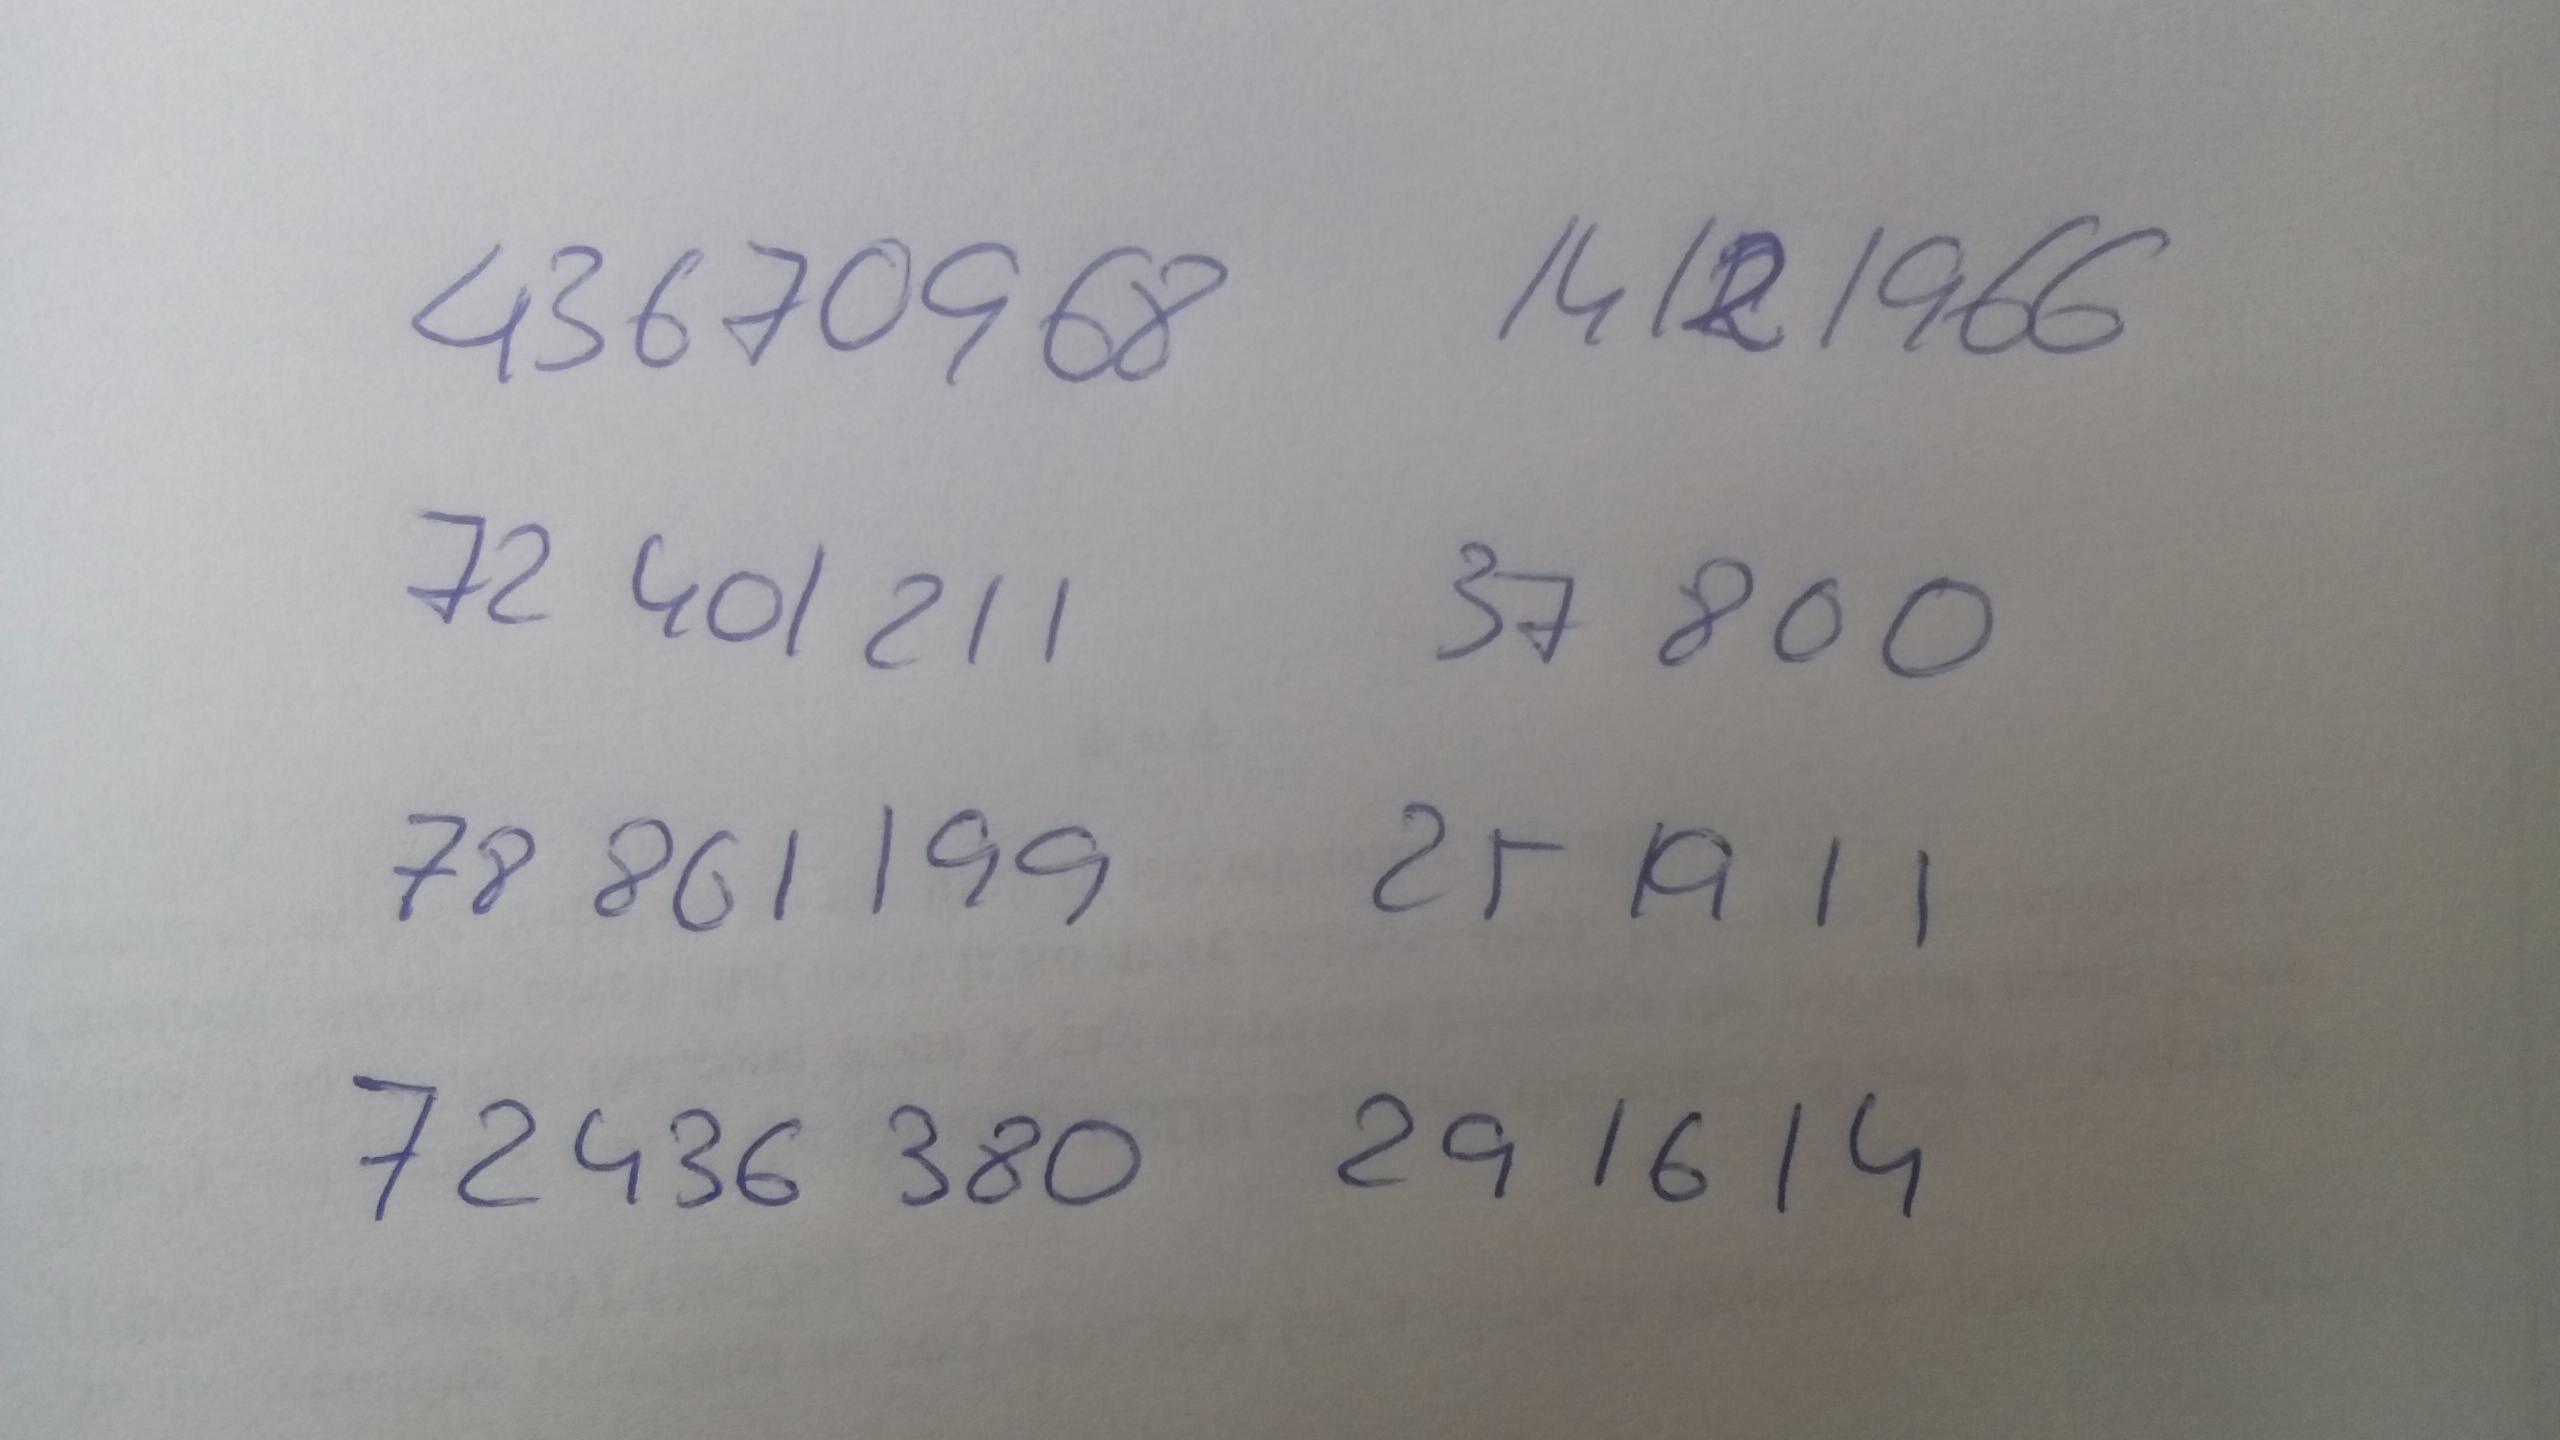 43670968 14121966
72 401 211 37 800
78 861 199 25 19 11
72436 380 29 16 14